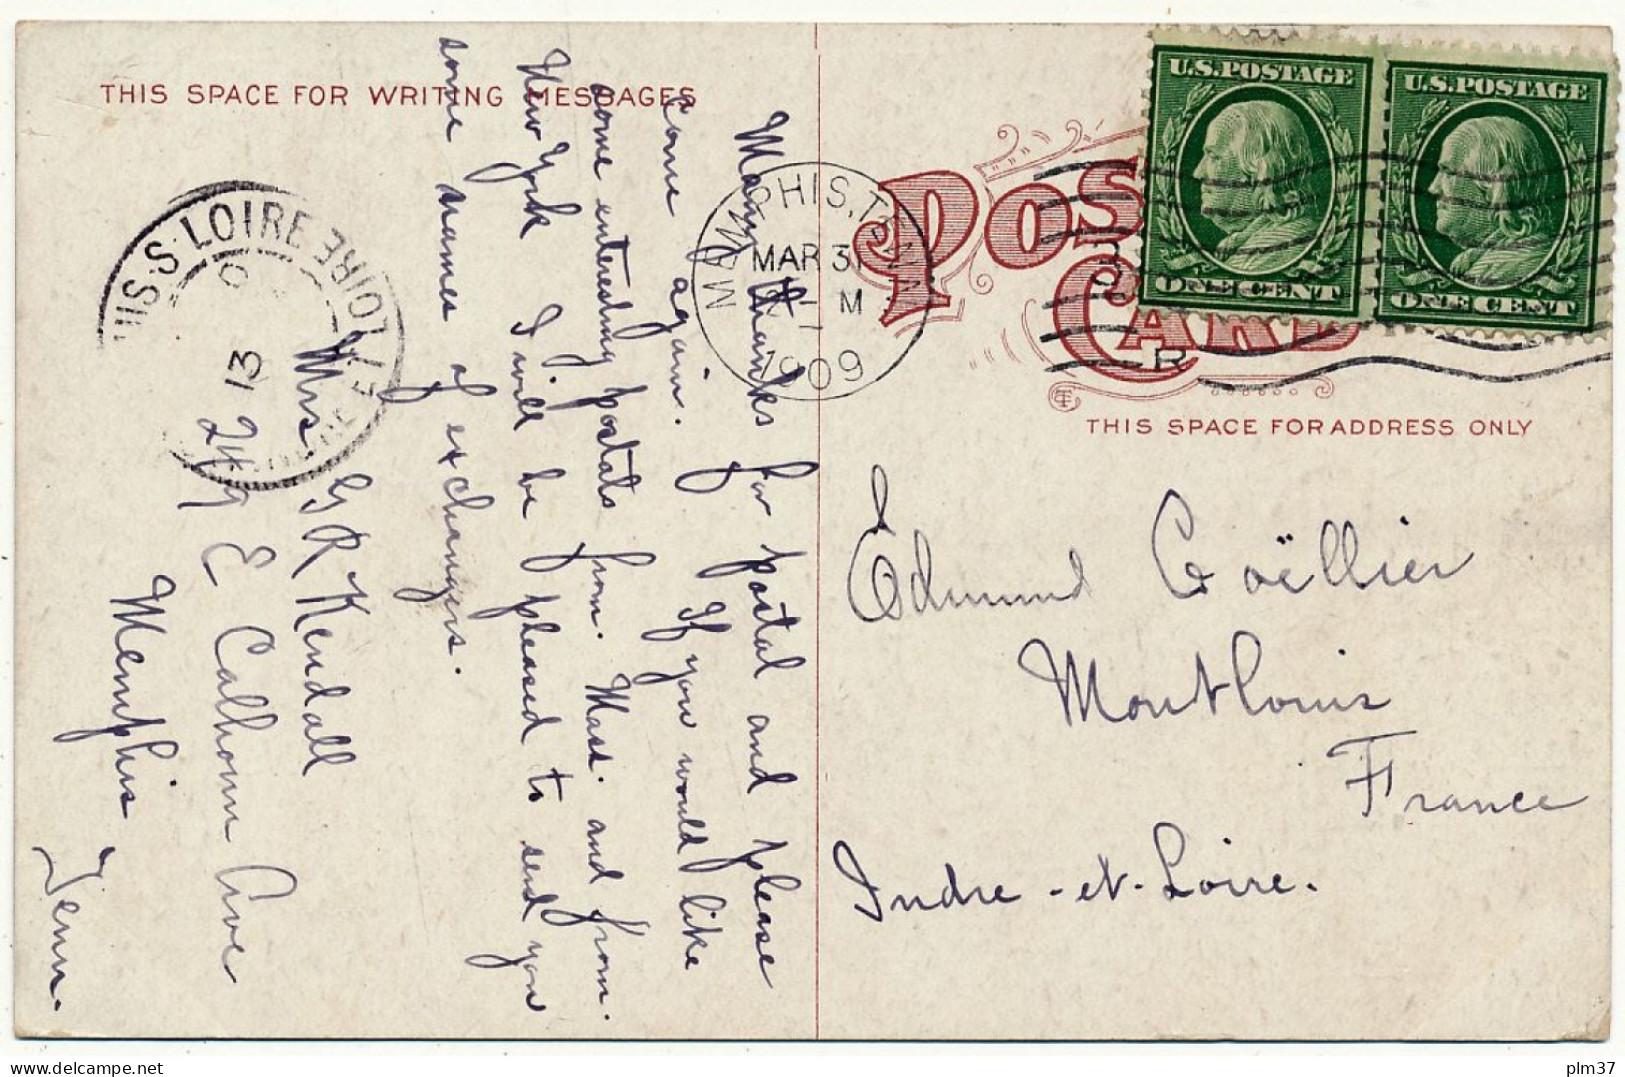 THIS SPACE FOR WRITING MESSAGES
Many thanks for postal and please
come again. If you would like
some entersting postals from. Mass. and from.
New York I will be pleased to send you
some names of exchangers.
Mrs. G R Kendall
249 E Calhoun Ave
Memphis
Tenn.
LOUIS-S-LOIRE
13
MEMPHIS, TENN.
MAR 31
M
1909
POST
CARD
U.S.POSTAGE
ONE CENT
U.S.POSTAGE
ONE CENT
R
THIS SPACE FOR ADDRESS ONLY
Edmund Goëllier
Montlouis
France
Indre-et-Loire.
delcampe.net
plm37